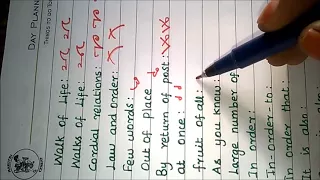 DAY PLANN
THINGS TO DO TO
Walk of Life:
Walks of Life:
Cordial relations:
Law and order:
Few words:
Out of place
By return of post:
at once:
fruit of all:
As you know:
Large number of
In order:
In-order-to:
In order that:
It is also: